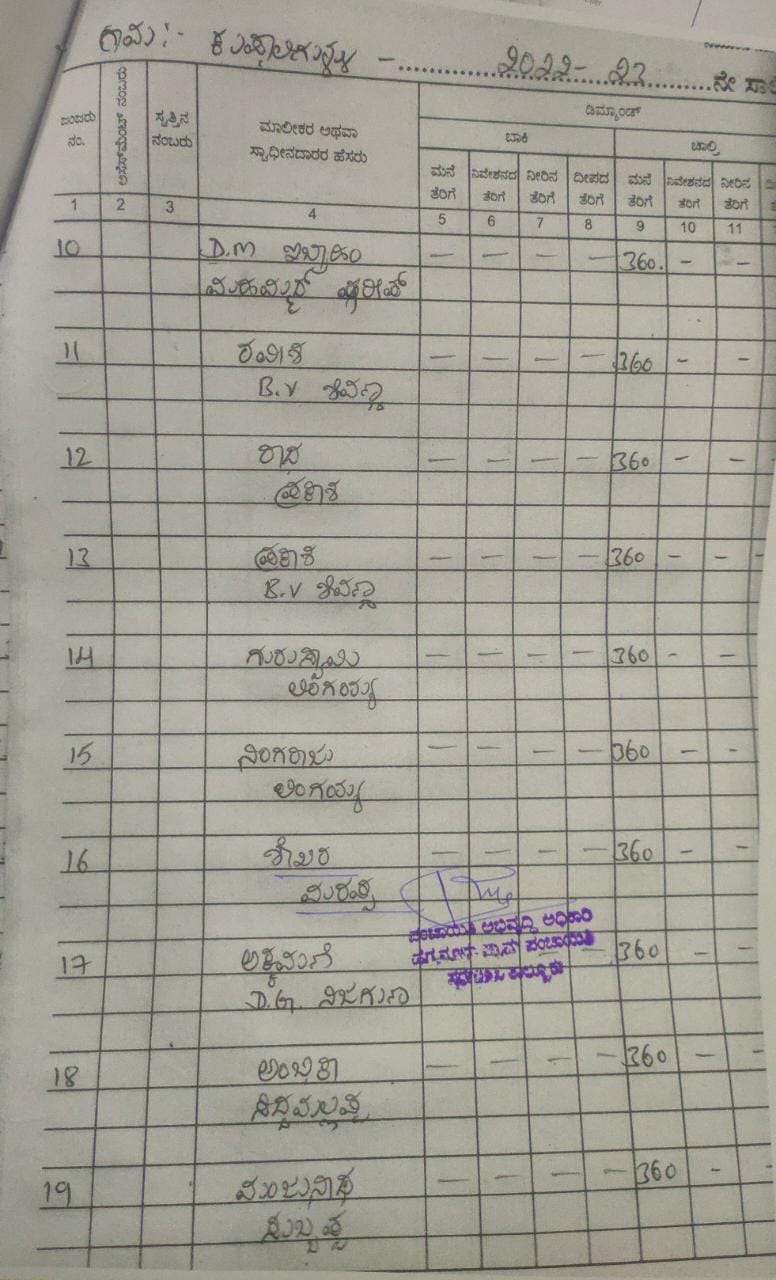 ಗ್ರಾಮ:- - 2022-23 ನೇ ಸಾಲಿ
ಡಿಮ್ಯಾಂಡ್
ಬಾಕಿ ಚಾಲ್ತಿ
ಜಂಬರು ನಂ. ಅಸೆಸ್‌ಮೆಂಟ್ ನಂಬರು ಸ್ವತ್ತಿನ ನಂಬರು ಮಾಲೀಕರ ಅಥವಾ ಸ್ವಾಧೀನದಾರರ ಹೆಸರು
ಮನೆ ತೆರಿಗೆ ನಿವೇಶನದ ತೆರಿಗೆ ನೀರಿನ ತೆರಿಗೆ ದೀಪದ ತೆರಿಗೆ ಮನೆ ತೆರಿಗೆ ನಿವೇಶನದ ತೆರಿಗೆ ನೀರಿನ ತೆರಿಗೆ
1 2 3 4 5 6 7 8 9 10 11
10 D.M ಇಬ್ರಾಹಿಂ — — — — 360. - -
ಮಹಮ್ಮದ್ ಷರೀಫ್
11 ರಮೇಶ — — — — 360 - -
B.V ಶಿವಣ್ಣ
12 ರಾಧ — — — — 360 - -
ಪ್ರಕಾಶ
13 ಪ್ರಕಾಶ — — — — 360 - - -
B.V ಶಿವಣ್ಣ
14 ಗುರುಸ್ವಾಮಿ — — — — 360 - -
ಲಿಂಗಯ್ಯ
15 ನಿಂಗರಾಜು — — — — 360 - -
ಲಿಂಗಯ್ಯ
16 ಶೇಖರ — — — — 360 - -
ಮರಪ್ಪ
ಪಂಚಾಯತಿ ಅಭಿವೃದ್ಧಿ ಅಧಿಕಾರಿ
ಗ್ರಾಮ ಪಂಚಾಯತಿ
17 — — 360 - -
D.G. ನಿಜಗುಣ
18 ಅಂಬಿಕಾ — — — — 360 - -
ಸಿದ್ದಮಲ್ಲಪ್ಪ
19 ಮಂಜುನಾಥ — — — — 360 - -
ಸುಬ್ಬಪ್ಪ